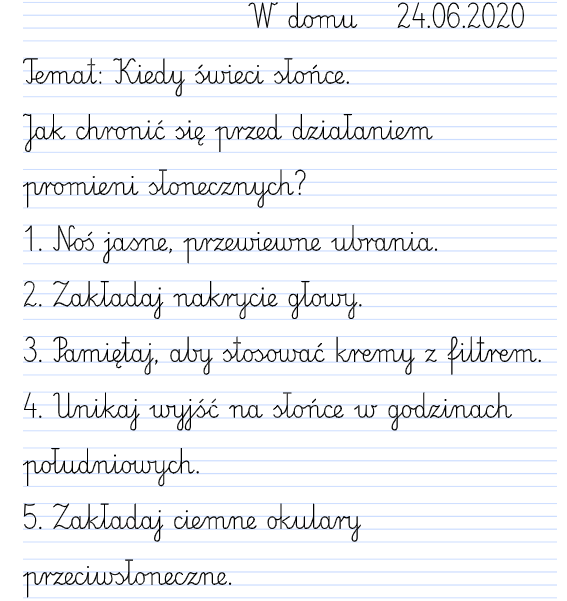 W domu 24.06.2020
Temat: Kiedy świeci słońce.
Jak chronić się przed działaniem
promieni słonecznych?
1. Noś jasne, przewiewne ubrania.
2. Zakładaj nakrycie głowy.
3. Pamiętaj, aby stosować kremy z filtrem.
4. Unikaj wyjść na słońce w godzinach
południowych.
5. Zakładaj ciemne okulary
przeciwsłoneczne.